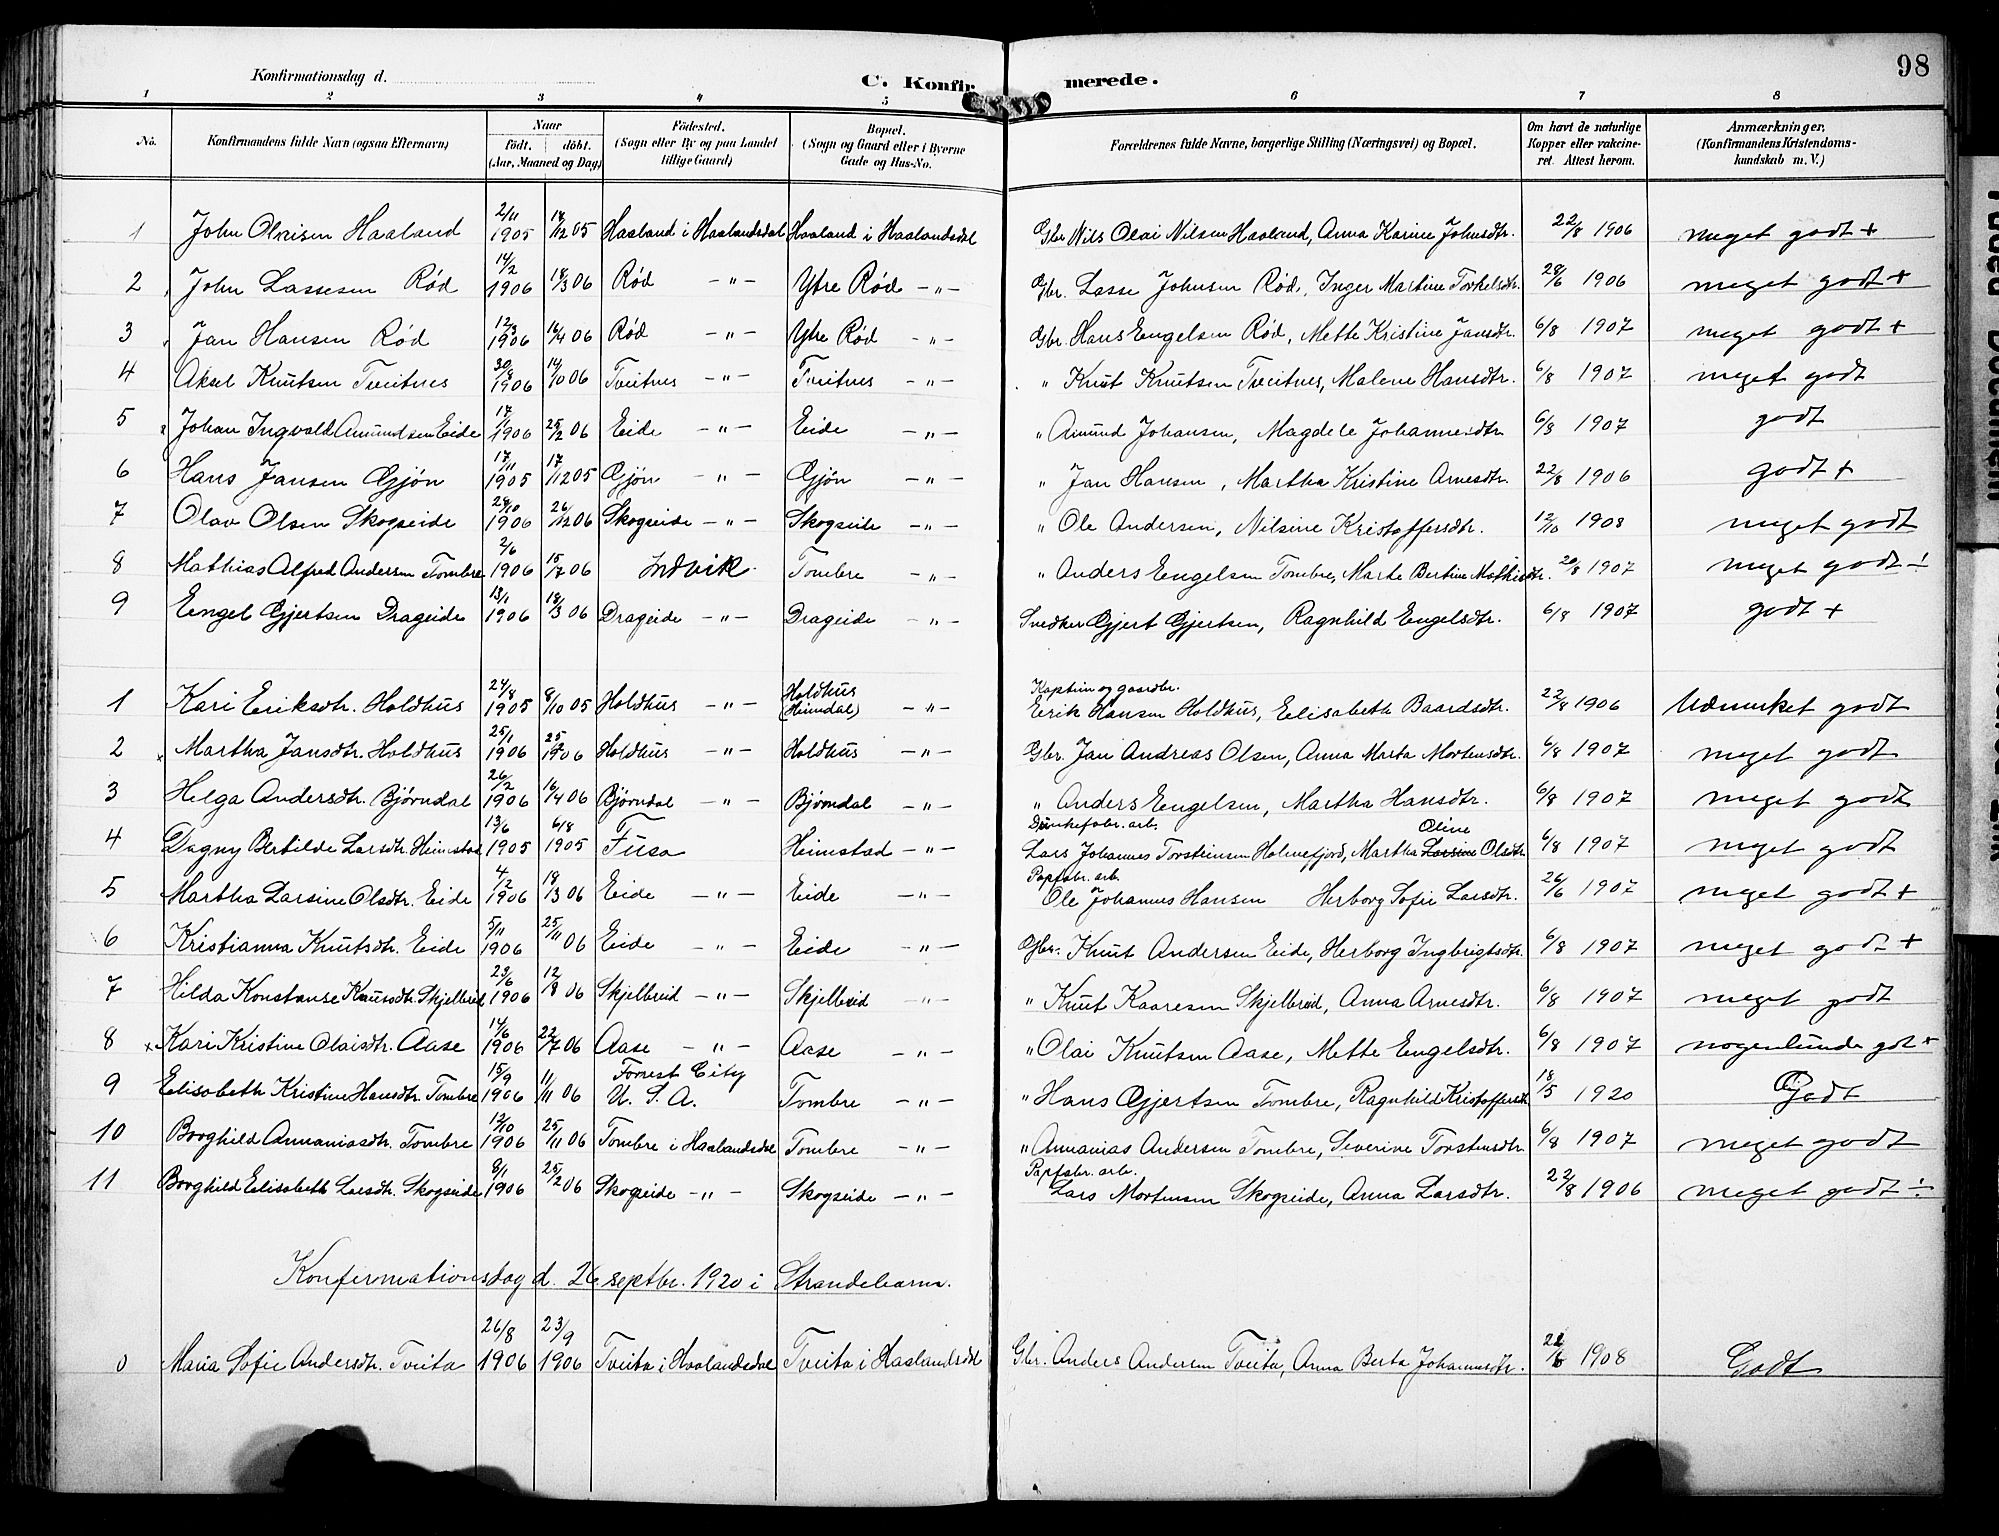 98
Konfirmationsdag d.
C. Konfirmerede.
1 2 3 4 5 6 7 8
No. Konfirmandens fulde Navn (ogsaa Efternavn) Naar födt. döbt. (Aar, Maaned og Dag) Födested. (Sogn eller By og paa Landet tillige Gaard) Bopæl. (Sogn og Gaard eller i Byerne Gade og Hus-No. Forældrenes fulde Navne, borgerlige Stilling (Næringsvei) og Bopæl. Om havt de naturlige Kopper eller vakcineret. Attest herom. Anmærkninger, (Konfirmandens Kristendomskundskab m. V.)
1 John Olaisen Haaland 2/11 1905 17/12 05 Haaland i Haalandsdal Haaland i Haalandsdal Gbr. Nils Olai Nilsen Haaland, Anna Karine Johnsdtr. 22/8 1906 meget godt +
2 John Lassesen Rød 14/2 1906 18/3 06 Rød -"- Ytre Rød -"- Gbr. Lasse Johnsen Rød, Inger Martine Torkelsdtr. 28/6 1906 meget godt +
3 Jan Hansen Rød 12/3 1906 16/4 06 Rød -"- Ytre Rød -"- Gbr. Hans Engelsen Rød, Mette Kristine Jansdtr. 6/8 1907 meget godt +
4 Aksel Knutsen Tveitnes 30/8 1906 14/10 06 Tveitnes -"- Tveitnes -"- " Knut Knutsen Tveitnes, Malene Hansdtr. 6/8 1907 meget godt
5 Johan Ingvald Amundsen Eide 17/1 1906 25/2 06 Eide -"- Eide -"- " Amund Johansen, Magdele Johannesdtr. 6/8 1907 godt
6 Hans Jansen Gjøn 17/11 1905 17/12 05 Gjøn -"- Gjøn -"- " Jan Hansen, Martha Kristine Arnesdtr. 22/8 1906 godt +
7 Olav Olsen Skogseide 28/10 1906 26/12 06 Skogseide -"- Skogseide -"- " Ole Andersen, Nilsine Kristoffersdtr. 12/10 1908 meget godt
8 Mathias Alfred Andersen Tombre 2/6 1906 15/7 06 Indvik. Tombre -"- " Anders Engelsen Tombre, Marte Bertine Mathisdtr. 20/8 1907 meget godt ÷
9 Engel Gjertsen Drageide 13/1 1906 18/3 06 Drageide -"- Drageide -"- Snedker Gjert Gjertsen, Ragnhild Engelsdtr. 6/8 1907 godt +
1 Kari Eriksdtr. Holdhus 24/8 1905 8/10 05 Holdhus -"- Holdhus (Heimdal) -"- Kaptein og gaardbr. Erik Hansen Holdhus, Elisabeth Baardsdtr. 22/8 1906 Udmerket godt
2 Martha Jansdtr. Holdhus 25/1 1906 25/2 1906 Holdhus -"- Holdhus -"- Gbr. Jan Andreas Olsen, Anna Marta Mortensdtr. 6/8 1907 meget godt
3 Helga Andersdtr. Bjørndal 26/2 1906 16/4 06 Bjørndal -"- Bjørndal -"- " Anders Engelsen, Martha Hansdtr. 6/8 1907 meget godt
4 Dagny Bertilde Larsdtr. Heimstad 13/6 1905 6/8 1905 Fusa Heimstad -"- Dunkefabr. arb. Lars Johannes Torsteinsen Holmefjord, Martha Larsine Oline Olsdtr. 6/8 1907 meget godt
5 Martha Larsine Olsdtr. Eide 4/2 1906 18/3 06 Eide -"- Eide -"- Papfabr. arb. Ole Johannes Hansen Herborg Sofie Larsdtr. 26/6 1907 meget godt +
6 Kristianna Knutsdtr. Eide 5/11 1906 25/11 06 Eide -"- Eide -"- Gbr. Knut Andersen Eide, Herborg Ingbrigtsdtr. 6/8 1907 meget godt +
7 Hilda Konstanse Knutsdtr. Skjelbreid 23/6 1906 12/8 06 Skjelbreid -"- Skjelbreid -"- " Knut Kaaresen Skjelbreid, Anna Arnesdtr. 6/8 1907 meget godt
8 Kari Kristine Olaisdtr. Aase 14/6 1906 22/7 06 Aase -"- Aase -"- " Olai Knutsen Aase, Mette Engelsdtr. 6/8 1907 nogenlunde got +
9 Elisabeth Kristine Hansdtr. Tombre 15/9 1906 11/11 06 Forrest City U. S. A. Tombre -"- " Hans Gjertsen Tombre, Ragnhild Kristoffersdtr. 18/5 1920 Godt
10 Borghild Annaniasdtr. Tombre 12/10 1906 25/11 06 Tombre i Haalandsdal Tombre -"- " Annanias Andersen Tombre, Severine Torsteinsdtr. 6/8 1907 meget godt
11 Borghild Elisabeth Larsdtr. Skogseide 8/1 1906 25/2 06 Skogseide -"- Skogseide -"- Papfabr. arb. Lars Mortensen Skogseide, Anna Larsdtr. 22/8 1906 meget godt ÷
Konfirmationsdag d. 26 septbr. 1920 i Strandebarm.
0 Maria Sofie Andersdtr. Tveita 26/8 1906 23/9 1906 Tveita i Haalandsdal Tveita i Haalandsdal Gbr. Anders Andersen Tveita, Anna Berta Johannesdtr. 1908 Godt